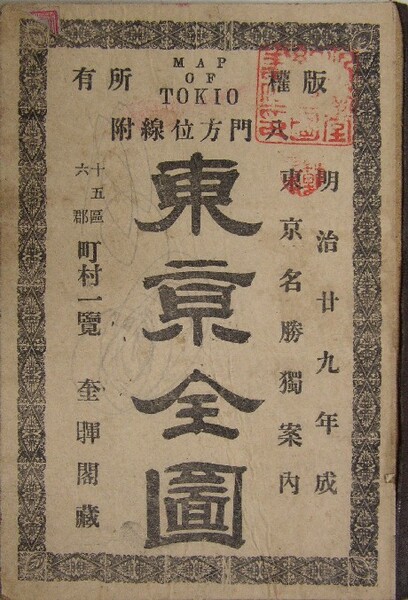 版權所有
MAP
OF
TOKIO
八門方位線附
明治廿九年成
東京名勝獨案内
東京全圖
十五區
六郡
町村一覽
奎暉閣藏